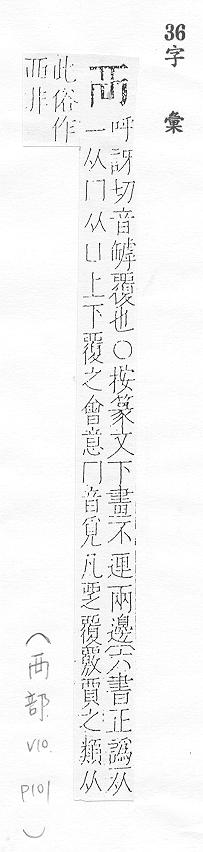 36字 彙
襾
呼訝切音罅覆也○按篆文下畫不連兩邊六書正譌从
一从冂从凵上下覆之會意冂音覓凡覂覆覈賈之類从
此俗作
覀非
（西部 V10. P101）